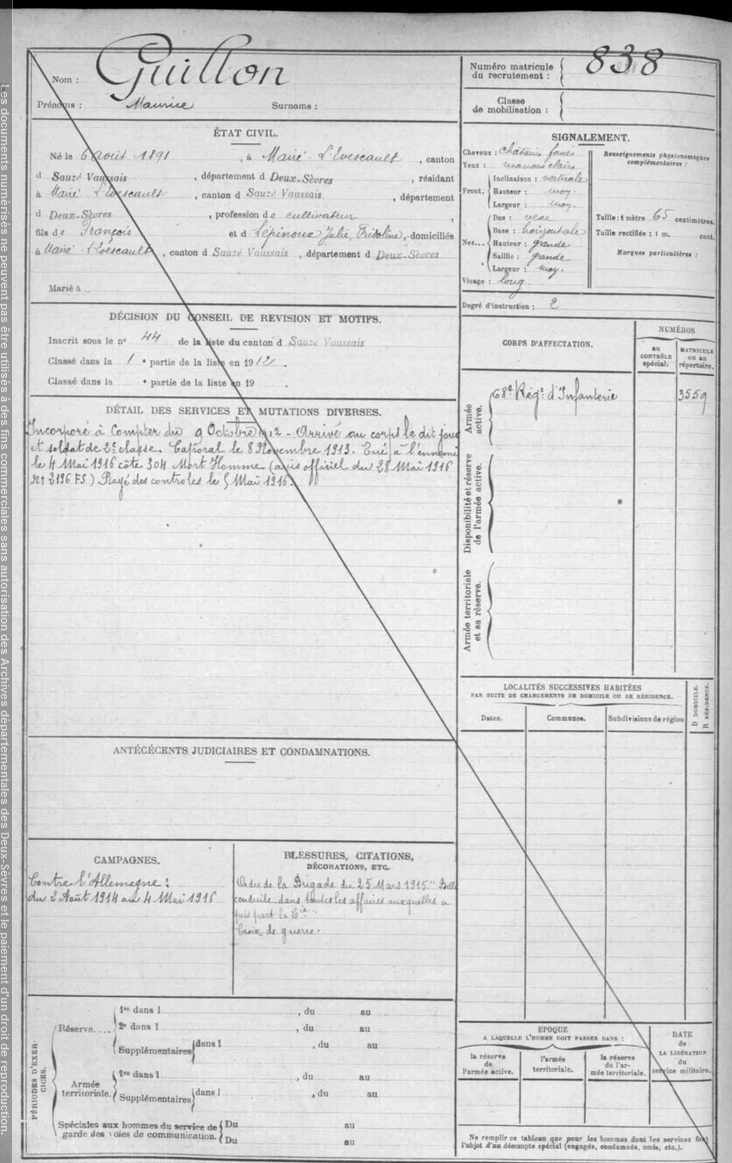 Les documents numérisés ne peuvent pas être utilisés à des fins commerciales sans autorisation des Archives départementales des Deux-Sèvres et le paiement d'un droit de reproduction.
Nom : Guillon
Prénoms : Maurice Surnoms :
Numéro matricule du recrutement : 838
Classe de mobilisation :
ÉTAT CIVIL.
Né le 6 Août 1891, à Mairé-L'Evescault, canton
d Sauzé Vaussais, département d Deux-Sèvres, résidant
à Mairé L'Evescault, canton d Sauzé Vaussais, département
d Deux-Sèvres, profession de cultivateur,
fils de François et d Lépinoux Julie, domiciliés
à Mairé-L'Evescault, canton d Sauzé Vaussais, département d Deux-Sèvres
Marié à
SIGNALEMENT.
Cheveux : châtains foncés
Yeux : marrons clairs
Front. Inclinaison : verticale
Hauteur : moy.
Largeur : moy.
Nez. Dos :
Base : horizontale
Hauteur : grande
Saillie : grande
Largeur : moy.
Visage : long
Renseignements physionomiques complémentaires :
Taille : 1 mètre 65 centimètres.
Taille rectifiée : 1 m. cent.
Marques particulières :
Degré d'instruction : 2
DÉCISION DU CONSEIL DE REVISION ET MOTIFS.
Inscrit sous le n° 44 de la liste du canton d Sauzé Vaussais
Classé dans la 1 e partie de la liste en 1912.
Classé dans la e partie de la liste en 19 .
DÉTAIL DES SERVICES ET MUTATIONS DIVERSES.
Incorporé à compter du 9 Octobre 1912 - Arrivé au corps le dit jour
et soldat de 2e classe. Caporal le 8 Novembre 1913. Tué à l'ennemi
le 4 Mai 1916 côte 304 Mort Homme (avis officiel du 28 Mai 1916
No 2196 F.S.) Rayé des controles le 5 Mai 1916.
CORPS D'AFFECTATION.
NUMÉROS
AU CONTRÔLE spécial.
MATRICULE OU AU répertoire.
Armée active.
68e Régt d'Infanterie 3559
Disponibilité et réserve de l'armée active.
Armée territoriale et sa réserve.
LOCALITÉS SUCCESSIVES HABITÉES
PAR SUITE DE CHANGEMENTS DE DOMICILE OU DE RÉSIDENCE.
Dates. Communes. Subdivisions de région
D DOMICILE. R RÉSIDENCE.
ANTÉCÉDENTS JUDICIAIRES ET CONDAMNATIONS.
CAMPAGNES.
Contre l'Allemagne :
du 2 Août 1914 au 4 Mai 1916
BLESSURES, CITATIONS,
DÉCORATIONS, ETC.
Ordre de la Brigade du 25 Mars 1915 "Belle
conduite dans toutes les affaires auxquelles a
pris part la Cie"
Croix de guerre.
PÉRIODES D'EXERCICES.
Réserve....
1re dans l , du au
2e dans l , du au
Supplémentaires dans l , du au
Armée territoriale.
1re dans l , du au
Supplémentaires dans l , du au
Spéciales aux hommes du service de garde des voies de communication.
Du au
Du au
EPOQUE
A LAQUELLE L'HOMME DOIT PASSER DANS :
la réserve de l'armée active.
l'armée territoriale.
la réserve de l'armée territoriale.
DATE de LA LIBÉRATION du service militaire.
Ne remplir ce tableau que pour les hommes dont les services font
l'objet d'un décompte spécial (engagés, condamnés, omis, etc.).